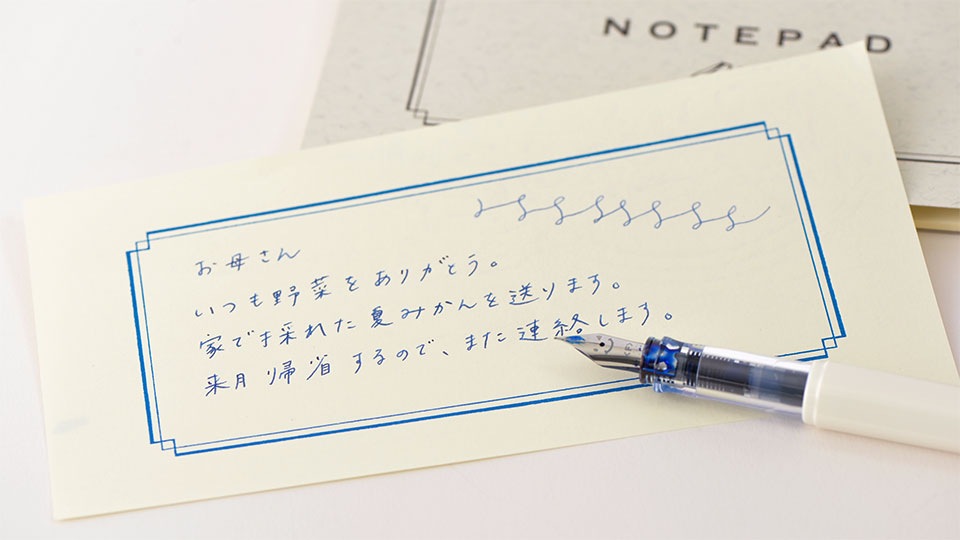 NOTEPAD
お母さん
いつも野菜をありがとう。
家でも採れた夏みかんを送ります。
来月帰省するので、また連絡します。